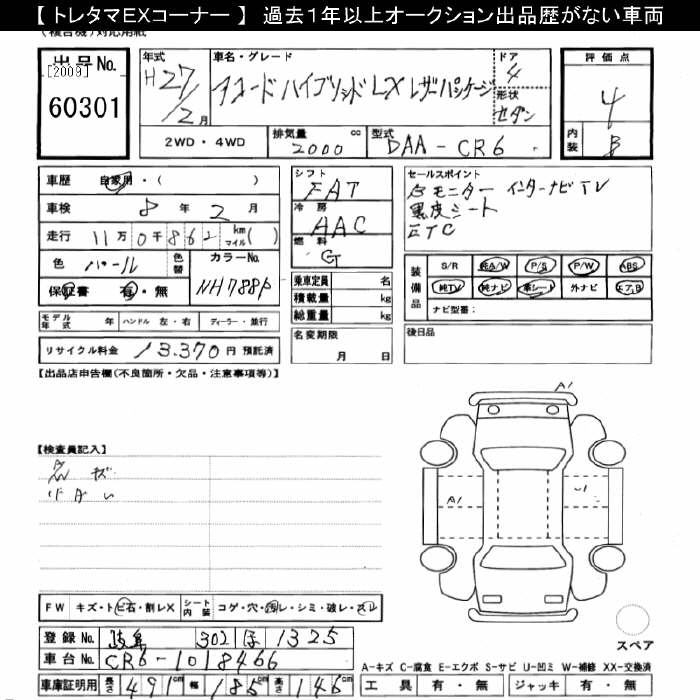 【 トレタマEXコーナー 】 過去１年以上オークション出品歴がない車両
(複合機)対応用紙
出品No.
[2009]
60301
年式 H27/2月
車名・グレード
アコードハイブリッドLX レザーパッケージ
ドア 4
形状 セダン
2WD・4WD
排気量 2000 cc
型式 DAA-CR6
評価点 4
内装 B
車歴 自家用・( )
車検 8年 2月
走行 11万0千862 km マイル( )
色 パール 色替 カラーNo. NH788P
保証書 有・無
モデル年式 年 ハンドル 左・右 ディーラー・並行
リサイクル料金 13.370 円 預託済
シフト FAT
冷房 AAC
燃料 G
乗車定員 名
積載量 kg
総重量 kg
名変期限
月 日
セールスポイント
Bモニター インターナビTV
黒皮シート
ETC
装備品
S/R 純A/W P/S P/W ABS
純TV 純ナビ 革シート 外ナビ エアB
ナビ型番:
後日品
【出品店申告欄(不良箇所・欠品・注意事項等)】
【検査員記入】
A1
A1
FW キズ・トビ石・割レX
シート内装 コゲ・穴・汚レ・シミ・破レ・スレ
登録No. 岐阜 302 ほ 1325
車台No. CR6-1018466
車庫証明用 長さ 491cm 幅 185cm 高さ 146cm
スペア
A-キズ C-腐食 E-エクボ S-サビ U-凹ミ W-補修 XX-交換済
工具 有・無 ジャッキ 有・無